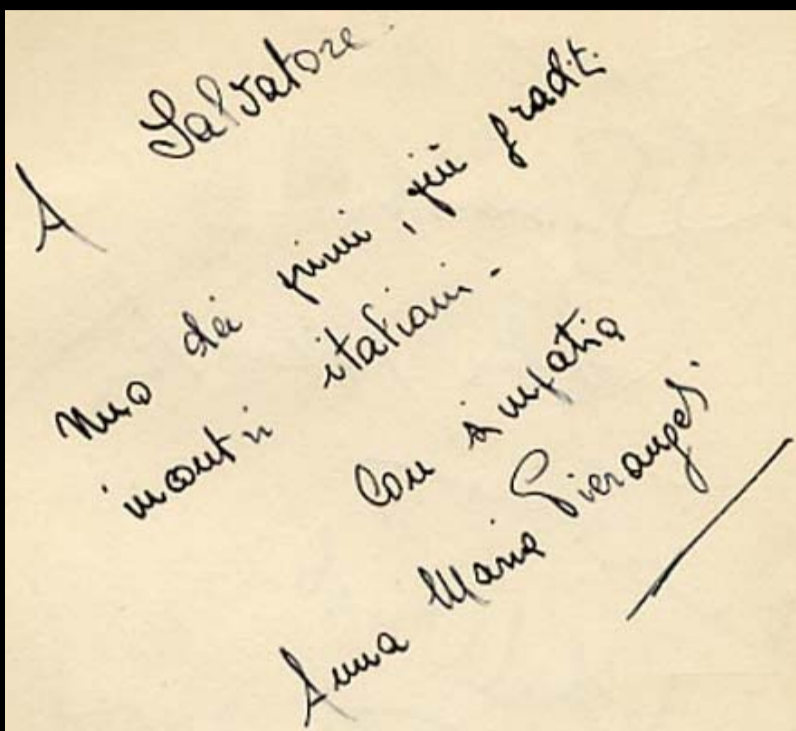 A Salvatore
uno dei primi, più graditi
incontri italiani -
Con simpatia
Anna Maria Pierangeli